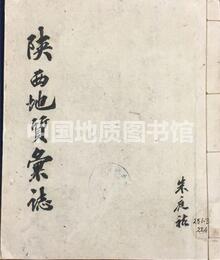 陕西地質彙誌
朱庭祜
中国地质图书馆